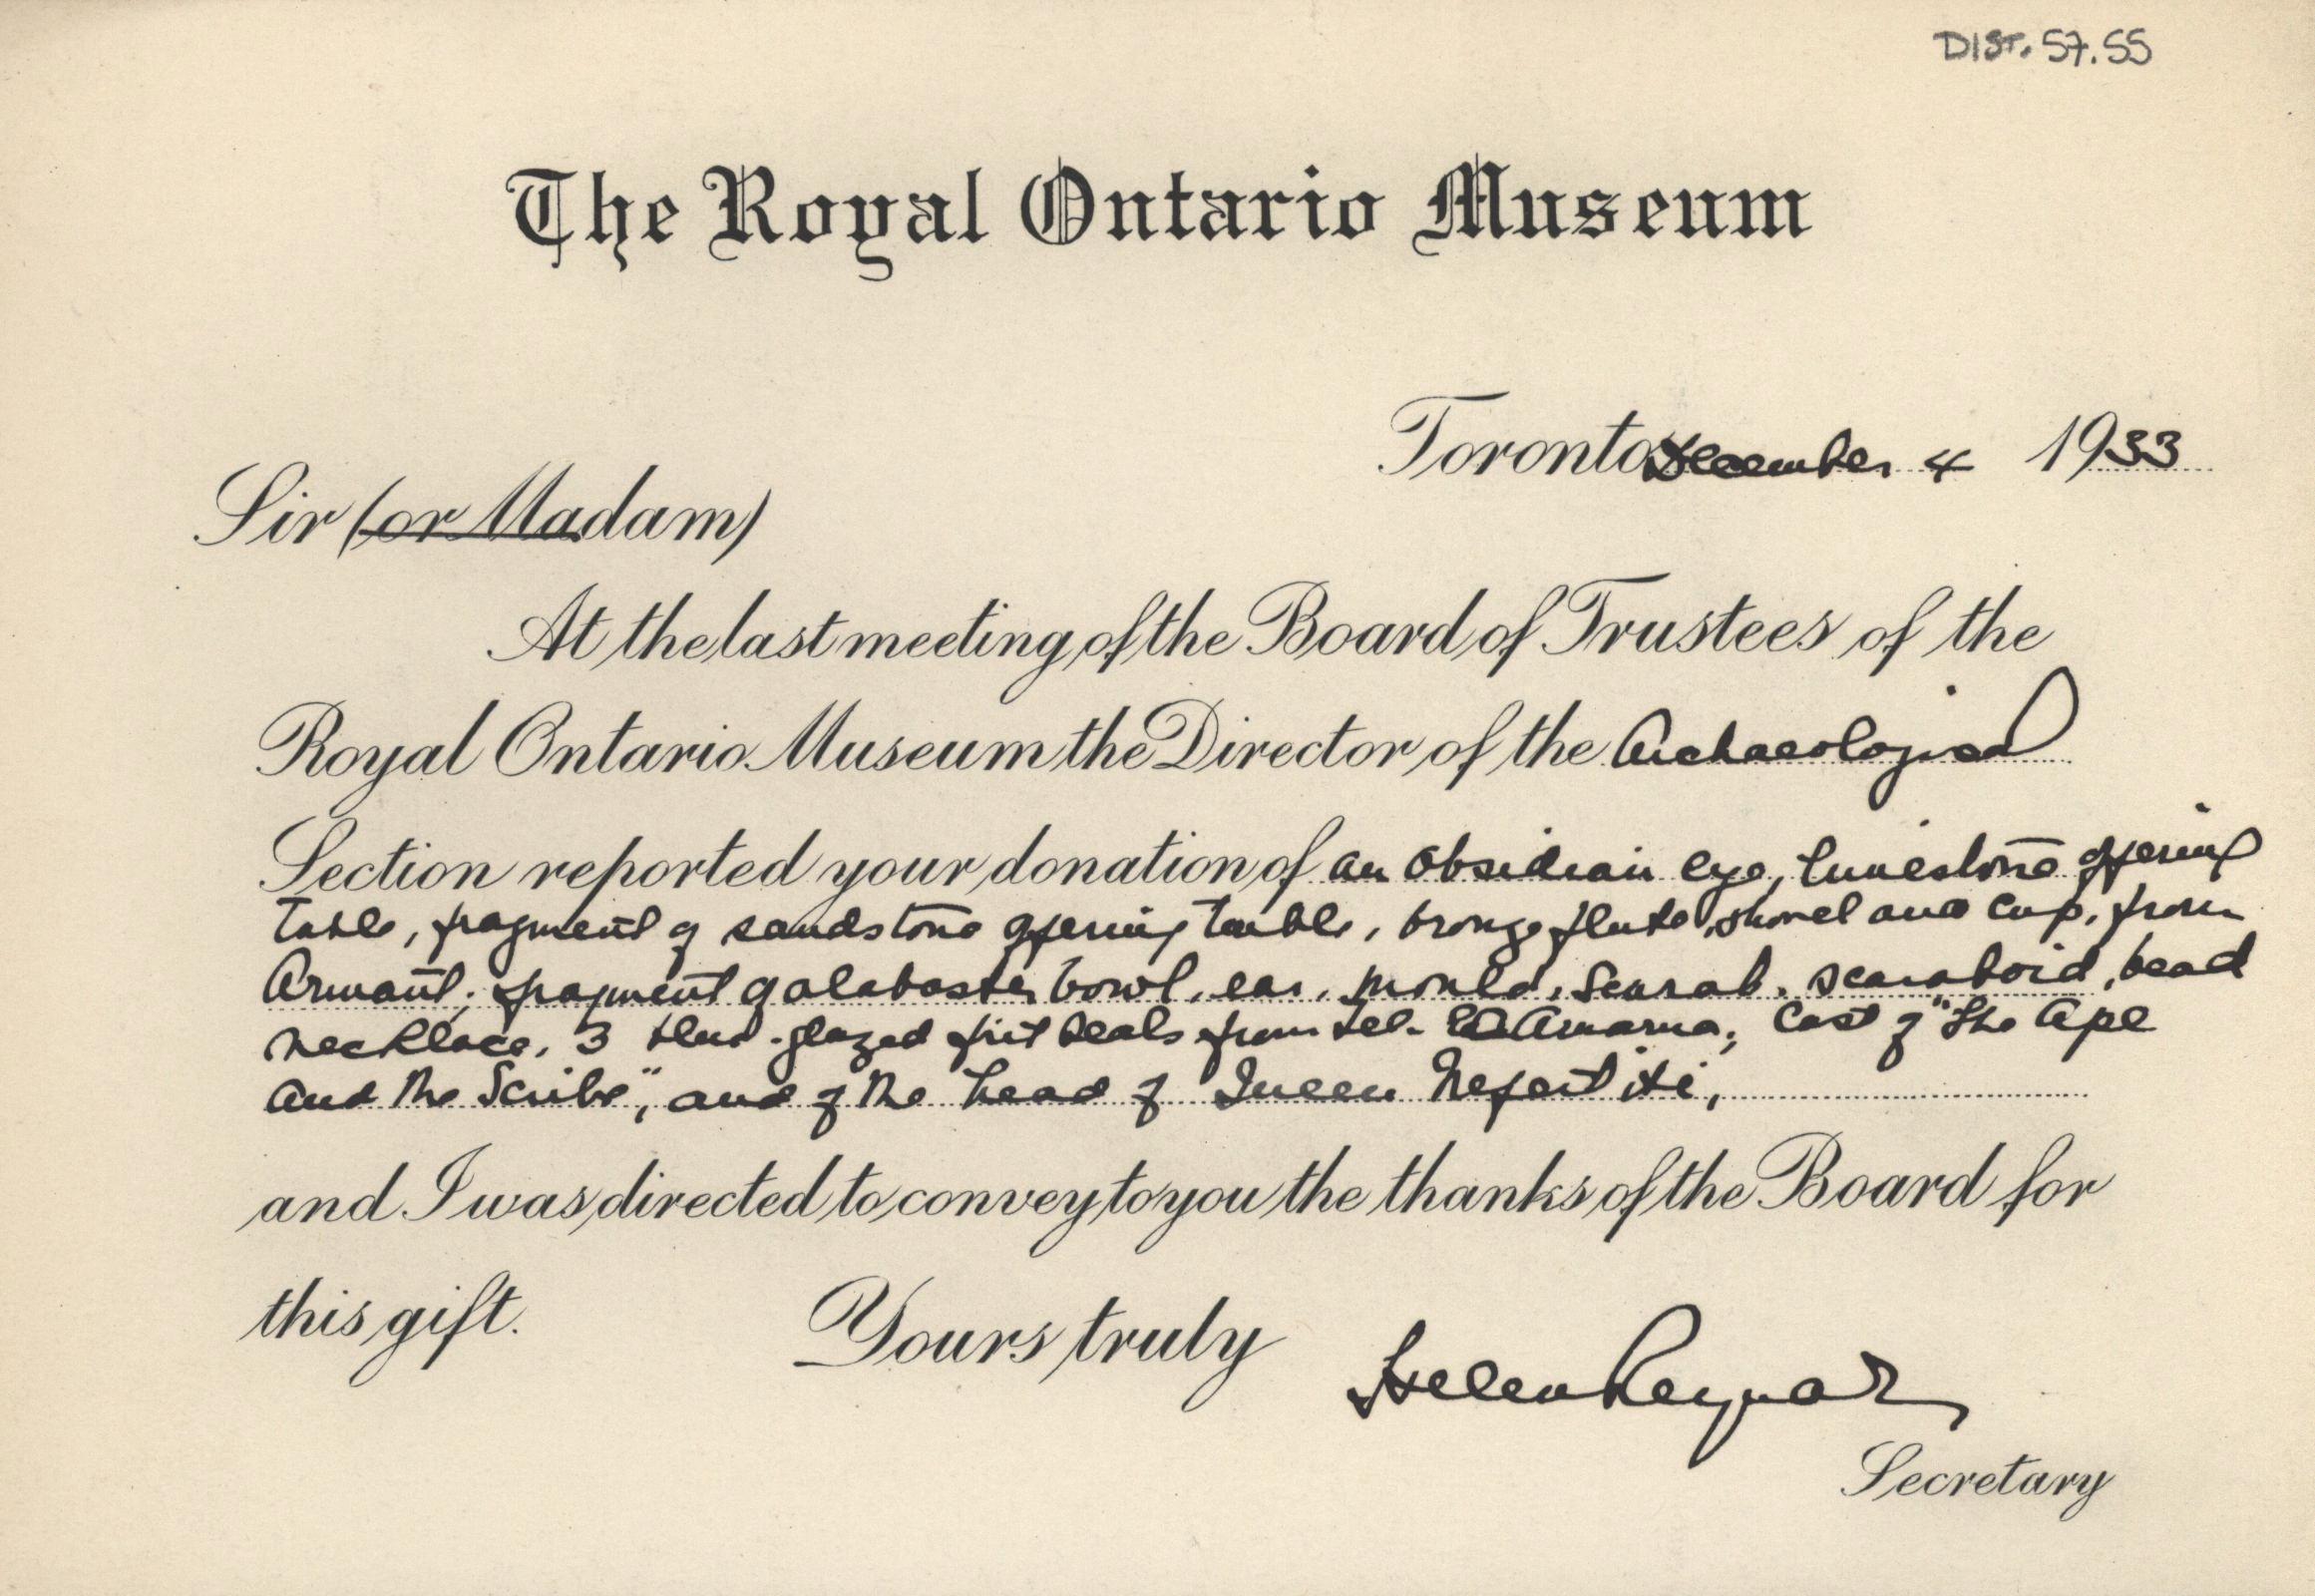 DIST. 57.55
The Royal Ontario Museum
Toronto December 4 1933
Sir (or Madam)
At the last meeting of the Board of Trustees of the
Royal Ontario Museum the Director of the Archaeological
Section reported your donation of an obsidian eye, limestone offering
table, fragment of sandstone offering table, bronze flute, shovel and cup, from
Armant; fragment of alabaster bowl, ear, mould, scarab, scaraboid, bead
necklace, 3 blue-glazed frit seals from Tel- El Amarna; Cast of "The Ape
and the Scribe", and of the head of Queen Nefertiti,
and I was directed to convey to you the thanks of the Board for
this gift.
Yours truly
Helen Reynar
Secretary